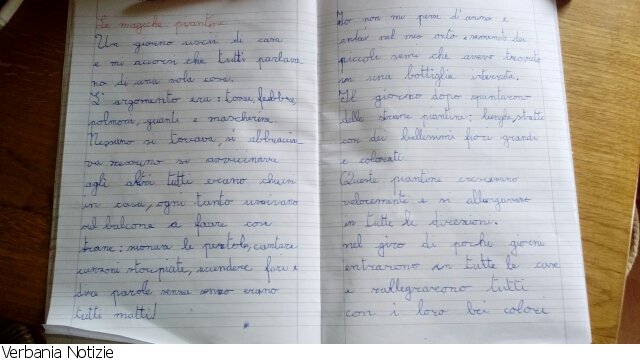 Le magiche piantine
Un giorno uscii di casa
e mi accorsi che tutti parlava
no di una sola cosa.
L'argomento era: tosse, febbre,
polmoni, guanti e mascherine.
Nessuno si toccava, si abbraccia
va nessuno si avvicinava
agli altri tutti erano chiusi
in casa, ogni tanto uscivano
sul balcone a fare cose
strane: suonare le pentole, cantare
canzoni storpiate, accendere fari e
dire parole senza senso erano
tutti matti!
Io non mi persi d'animo e
andai nel mio orto seminando dei
piccoli semi che avevo trovato
in una bottiglia interrata.
Il giorno dopo spuntarono
delle strane piantine: lunghe, strette
con dei bellissimi fiori grandi
e colorati.
Queste piantine crescevano
velocemente e si allungavano
in tutte le direzioni.
nel giro di pochi giorni
entrarono in tutte le case
e rallegrarono tutti
con i loro bei colori
Verbania Notizie